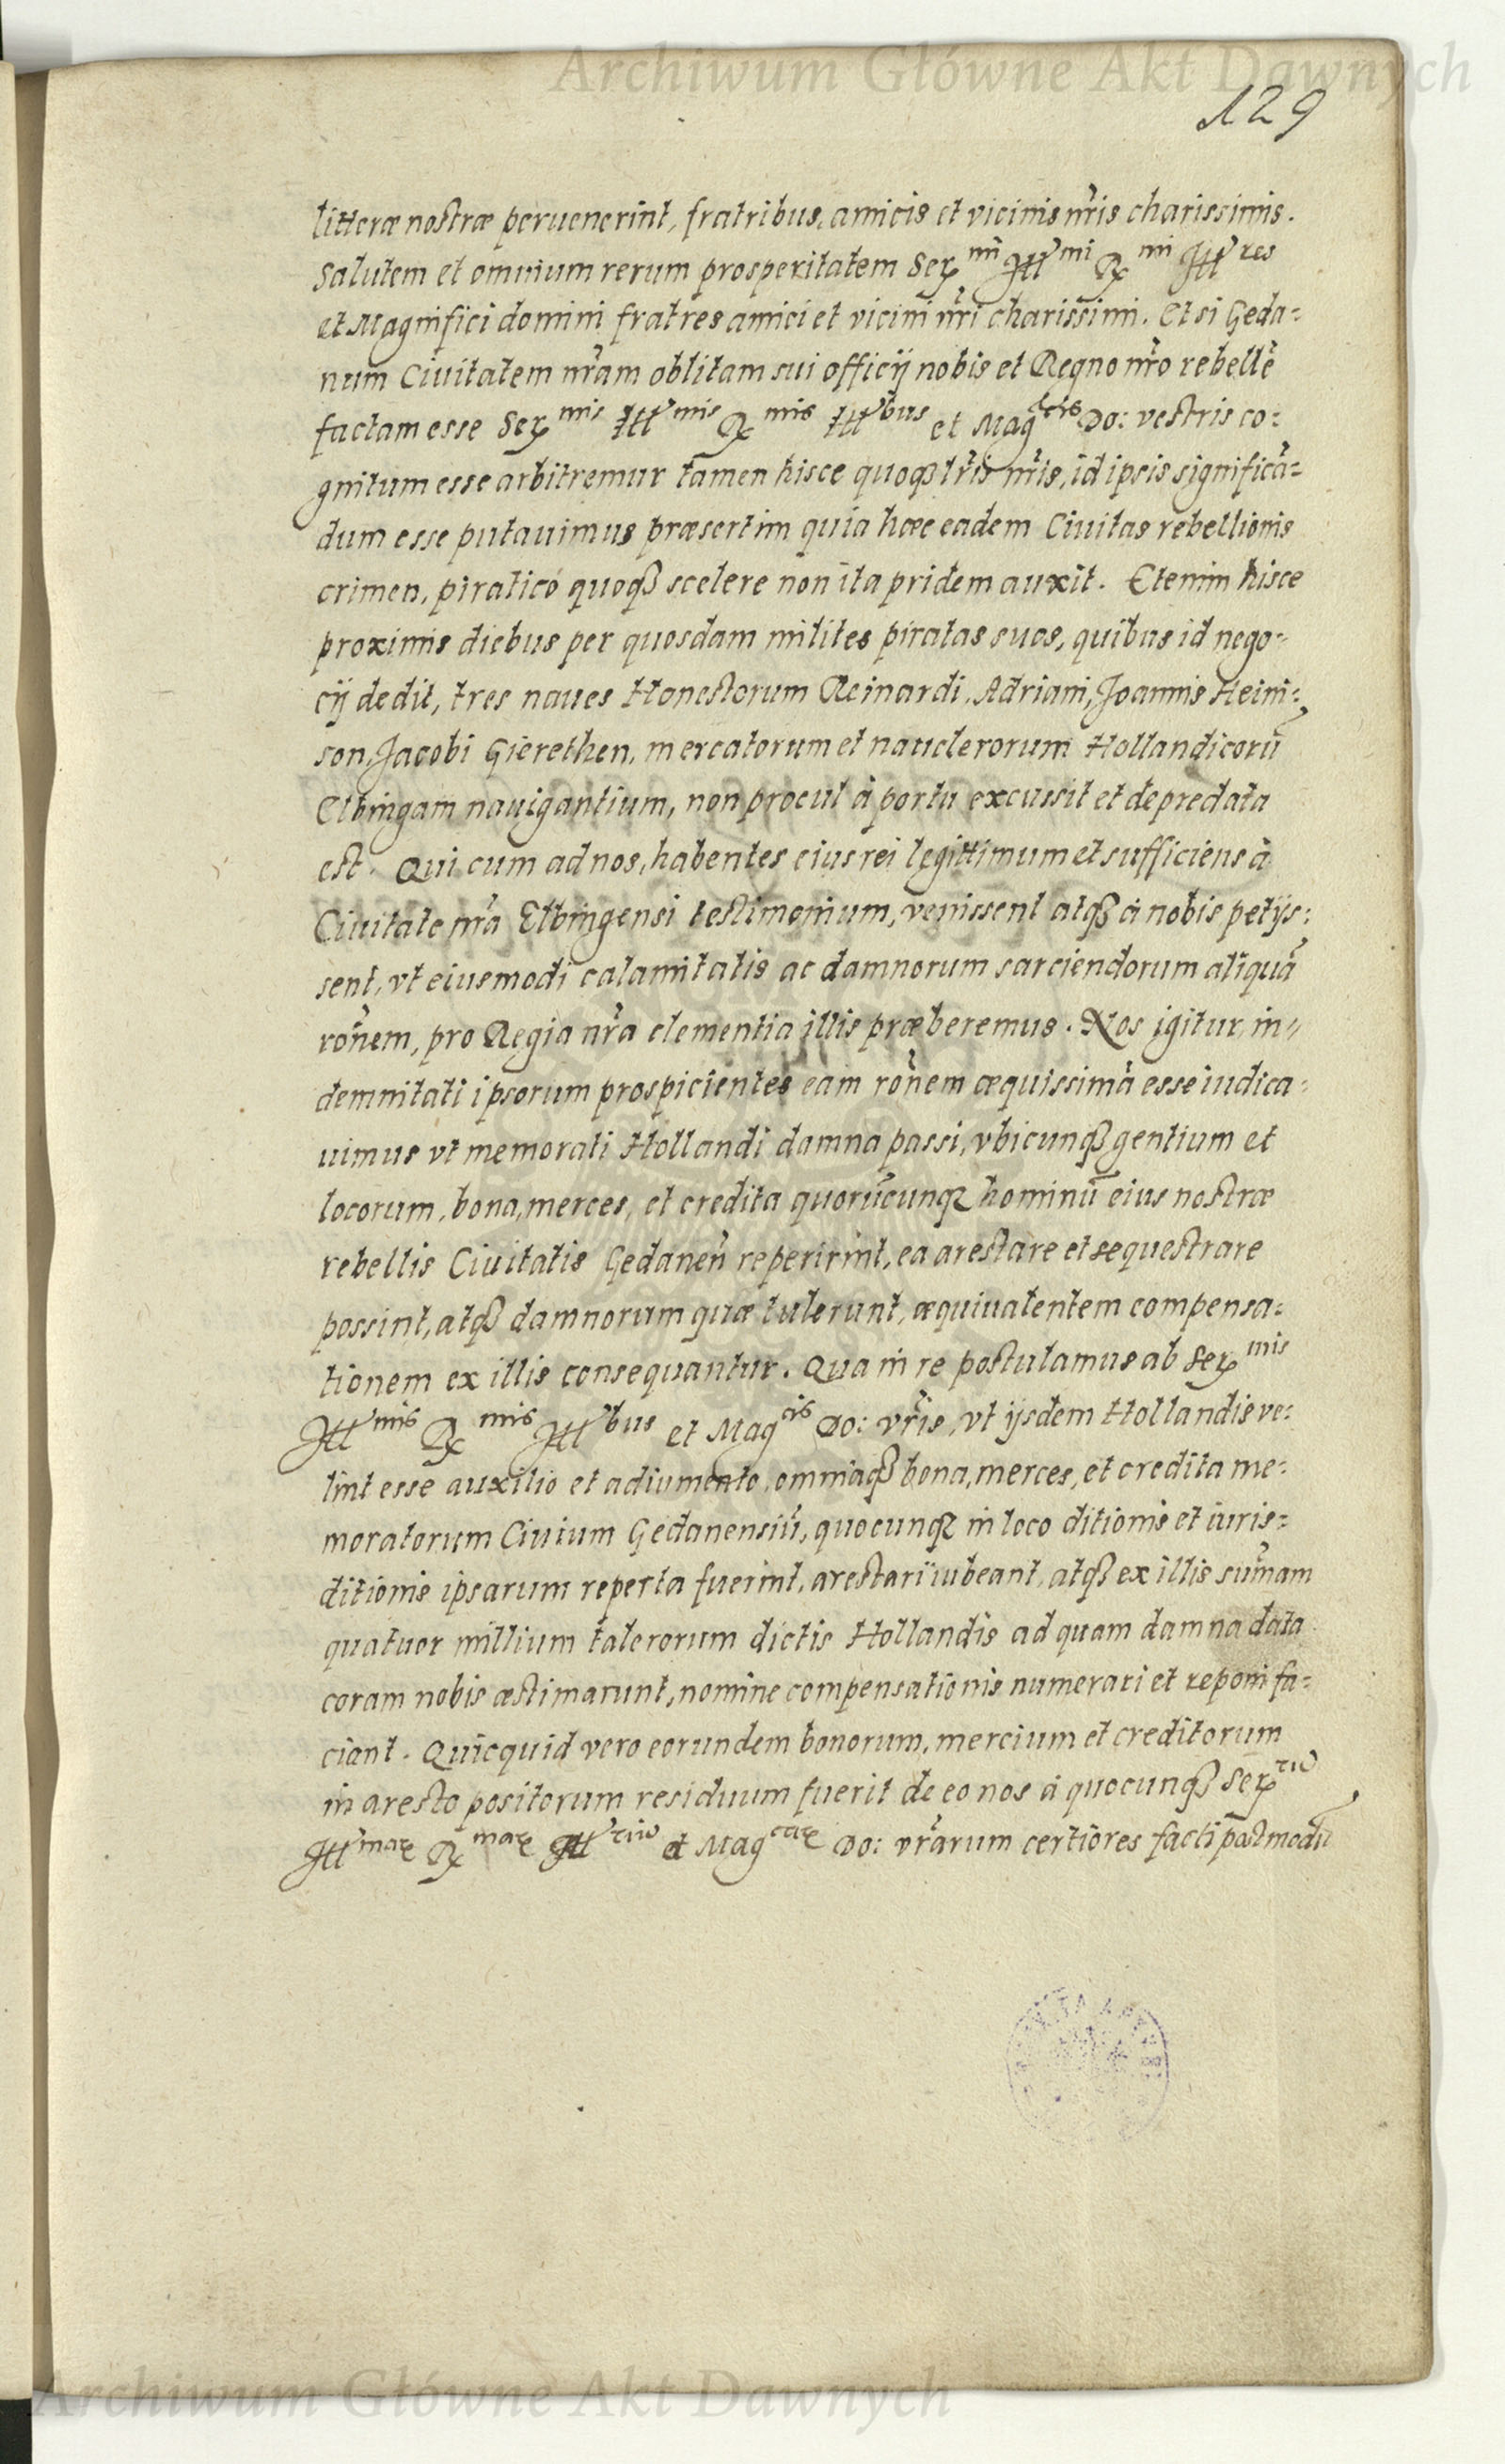 Archiwum Główne Akt Dawnych
129
litteræ nostræ peruenerint, fratribus, amicis et vicinis nr̃is charissimis.
Salutem et omnium rerum prosperitatem Ser mi Ill mi R mi Ill res
et Magnifici domini fratres amici et vicini nr̃i charissimi. Et si Geda=
num Ciuitatem nr̃am oblitam sui officij nobis et Regno nr̃o rebellẽ
factam esse Ser mis Ill mis R mis Ill bus et Mag cis Do: vestris co:
gnitum esse arbitremur tamen hisce quoqȝ lr̃is nr̃is, id ipsis significã=
dum esse putauimus præsertim quia hæc eadem Ciuitas rebellionis
crimen, piratico quoqȝ scelere non ita pridem auxit. Etenim hisce
proximis diebus per quosdam milites piratas suos, quibus id nego=
cij dedit, tres naues Honestorum Reinardi, Adriani, Joannis Heini=
son, Jacobi Gierethen, mercatorum et nauclerorum Hollandicorũ
Elbingam nauigantium, non procul à portu excussit et depredata
est. Qui cum ad nos, habentes eius rei legittimum et sufficiens à
Ciuitate nr̃a Elbingensi testimonium, venissent atqȝ à nobis petijs:
sent, vt eiusmodi calamitatis ac damnorum sarciendorum aliquã
rõnem, pro Regia nr̃a clementia illis præberemus. Nos igitur in=
demnitati ipsorum prospicientes eam rõnem æquissimã esse iudica=
uimus vt memorati Hollandi damna passi, vbicunqȝ gentium et
locorum, bona, merces, et credita quorũcunqȝ hominũ eius nostræ
rebellis Ciuitatis Gedaneñ reperirint, ea arestare et sequestrare
possint, atqȝ damnorum quæ tulerunt, æquiualentem compensa=
tionem ex illis consequantur. Qua in re postulamus ab Ser mis
Ill mis R mis Ill bus et Mag cis Do: vr̃is, vt ijsdem Hollandis ve:
lint esse auxilio et adiumento, omniaqȝ bona, merces, et credita me=
moratorum Ciuium Gedanensiũ, quocunqȝ in loco ditionis et iuris=
ditionis ipsarum reperta fuerint, arestari iubeant, atqȝ ex illis sum̃am
quatuor millium talerorum dictis Hollandis ad quam damna data
coram nobis æstimarunt, nomine compensationis numerari et reponi fa=
ciant. Quicquid vero eorundem bonorum, mercium et creditorum
in aresto positorum residuum fuerit de eo nos à quocunqȝ Ser
Ill mar R mar Ill et Mag Do: vr̃arum certiores facti postmodũ
Archiwum Główne Akt Dawnych